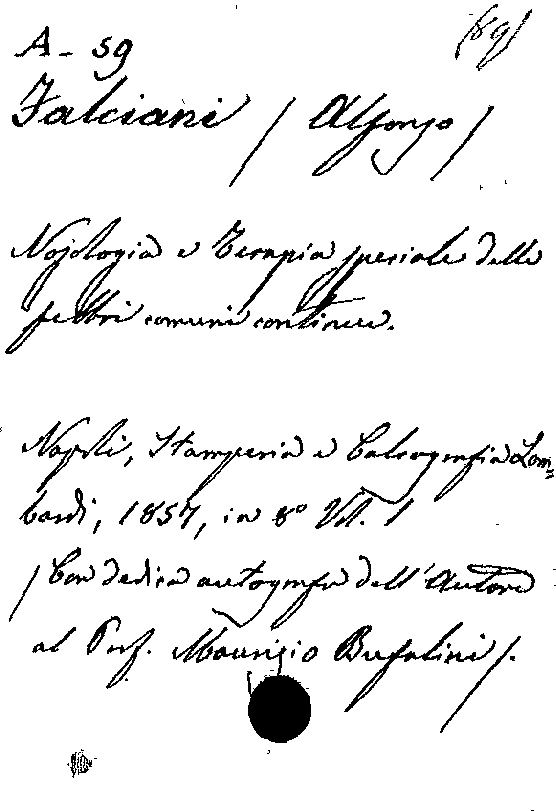 A - 59
(89)
Falciani / Alfonso /
Nosologia e Terapia speciale delle
febbri comuni continue.
Napoli, Stamperia e Calcografia Lom=
bardi, 1857, in 8° Vol. 1
/ Con dedica autografa dell'Autore
al Prof. Maurizio Bufalini /.